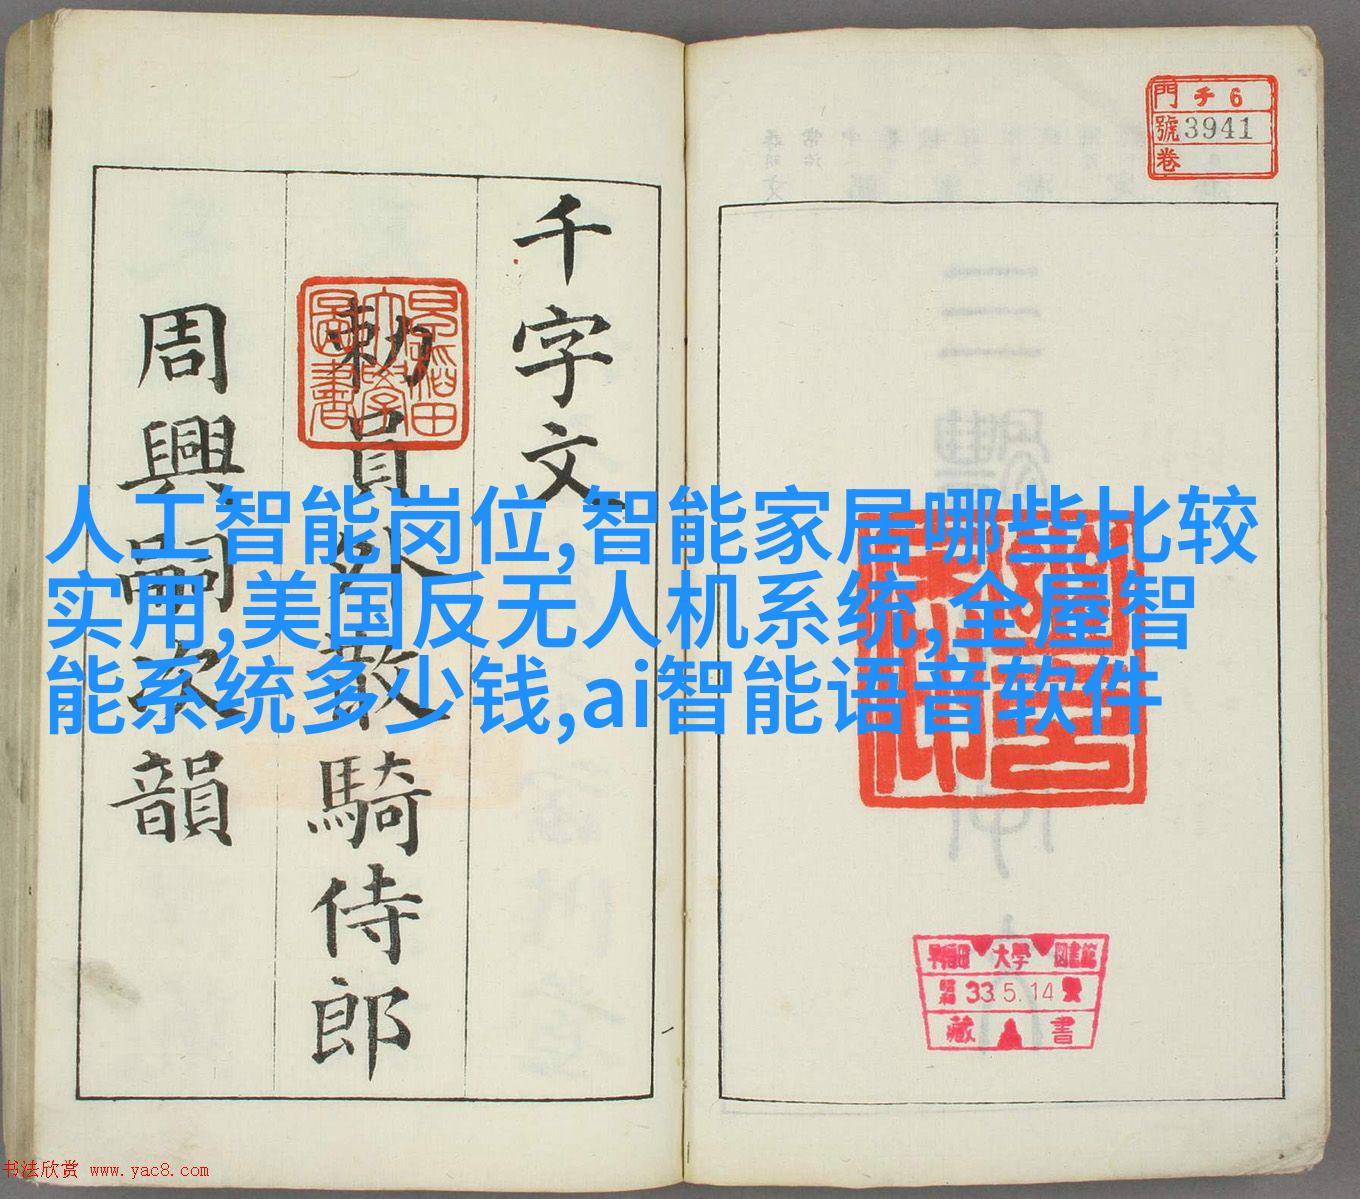 千字文
勅員外散騎侍郎
周興嗣次韻
人工智能岗位,智能家居哪些比较
实用,美国反无人机系统,全屋智
能系统多少钱,ai智能语音软件
門 チ 6
號 3941
卷
早稲田文學圖書
早稲田 大學 図書館
昭和 33.5.14
藏 書
书法欣赏 www.yac8.com